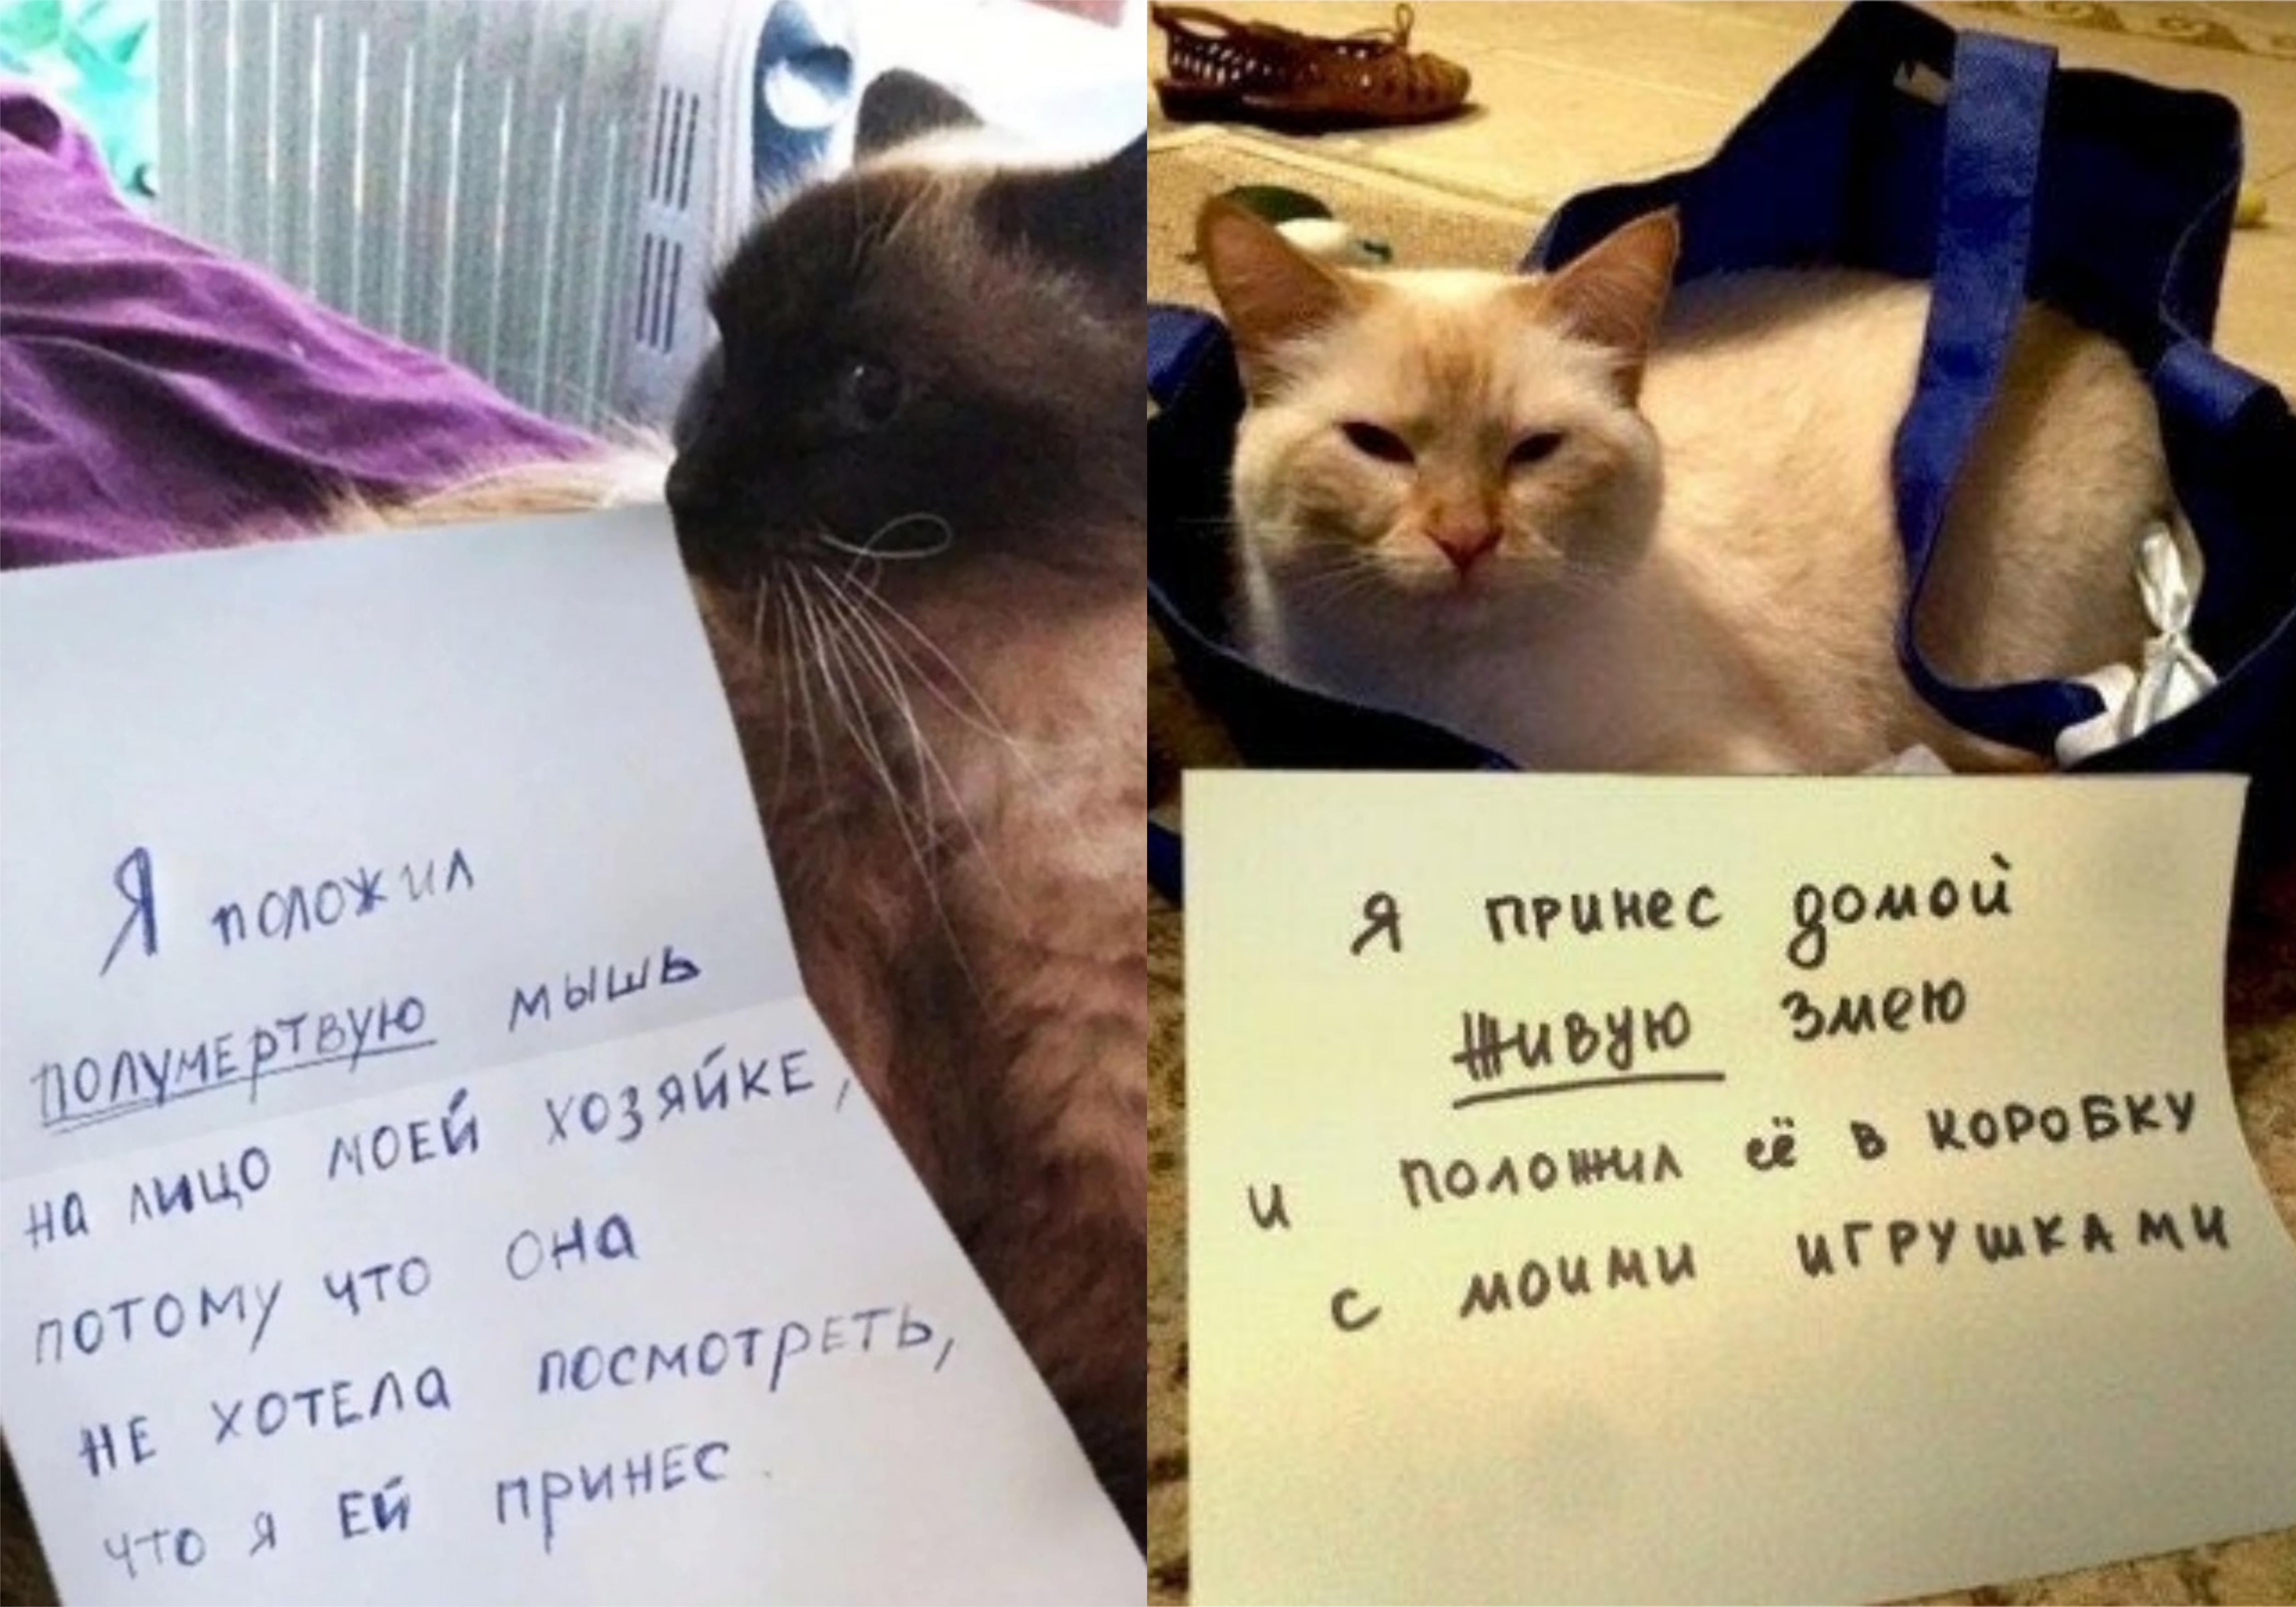 Я положил
полумертвую мышь
на лицо моей хозяйке,
потому что она
не хотела посмотреть,
что я ей принес.
я принес домой
живую змею
и положил её в коробку
с моими игрушками